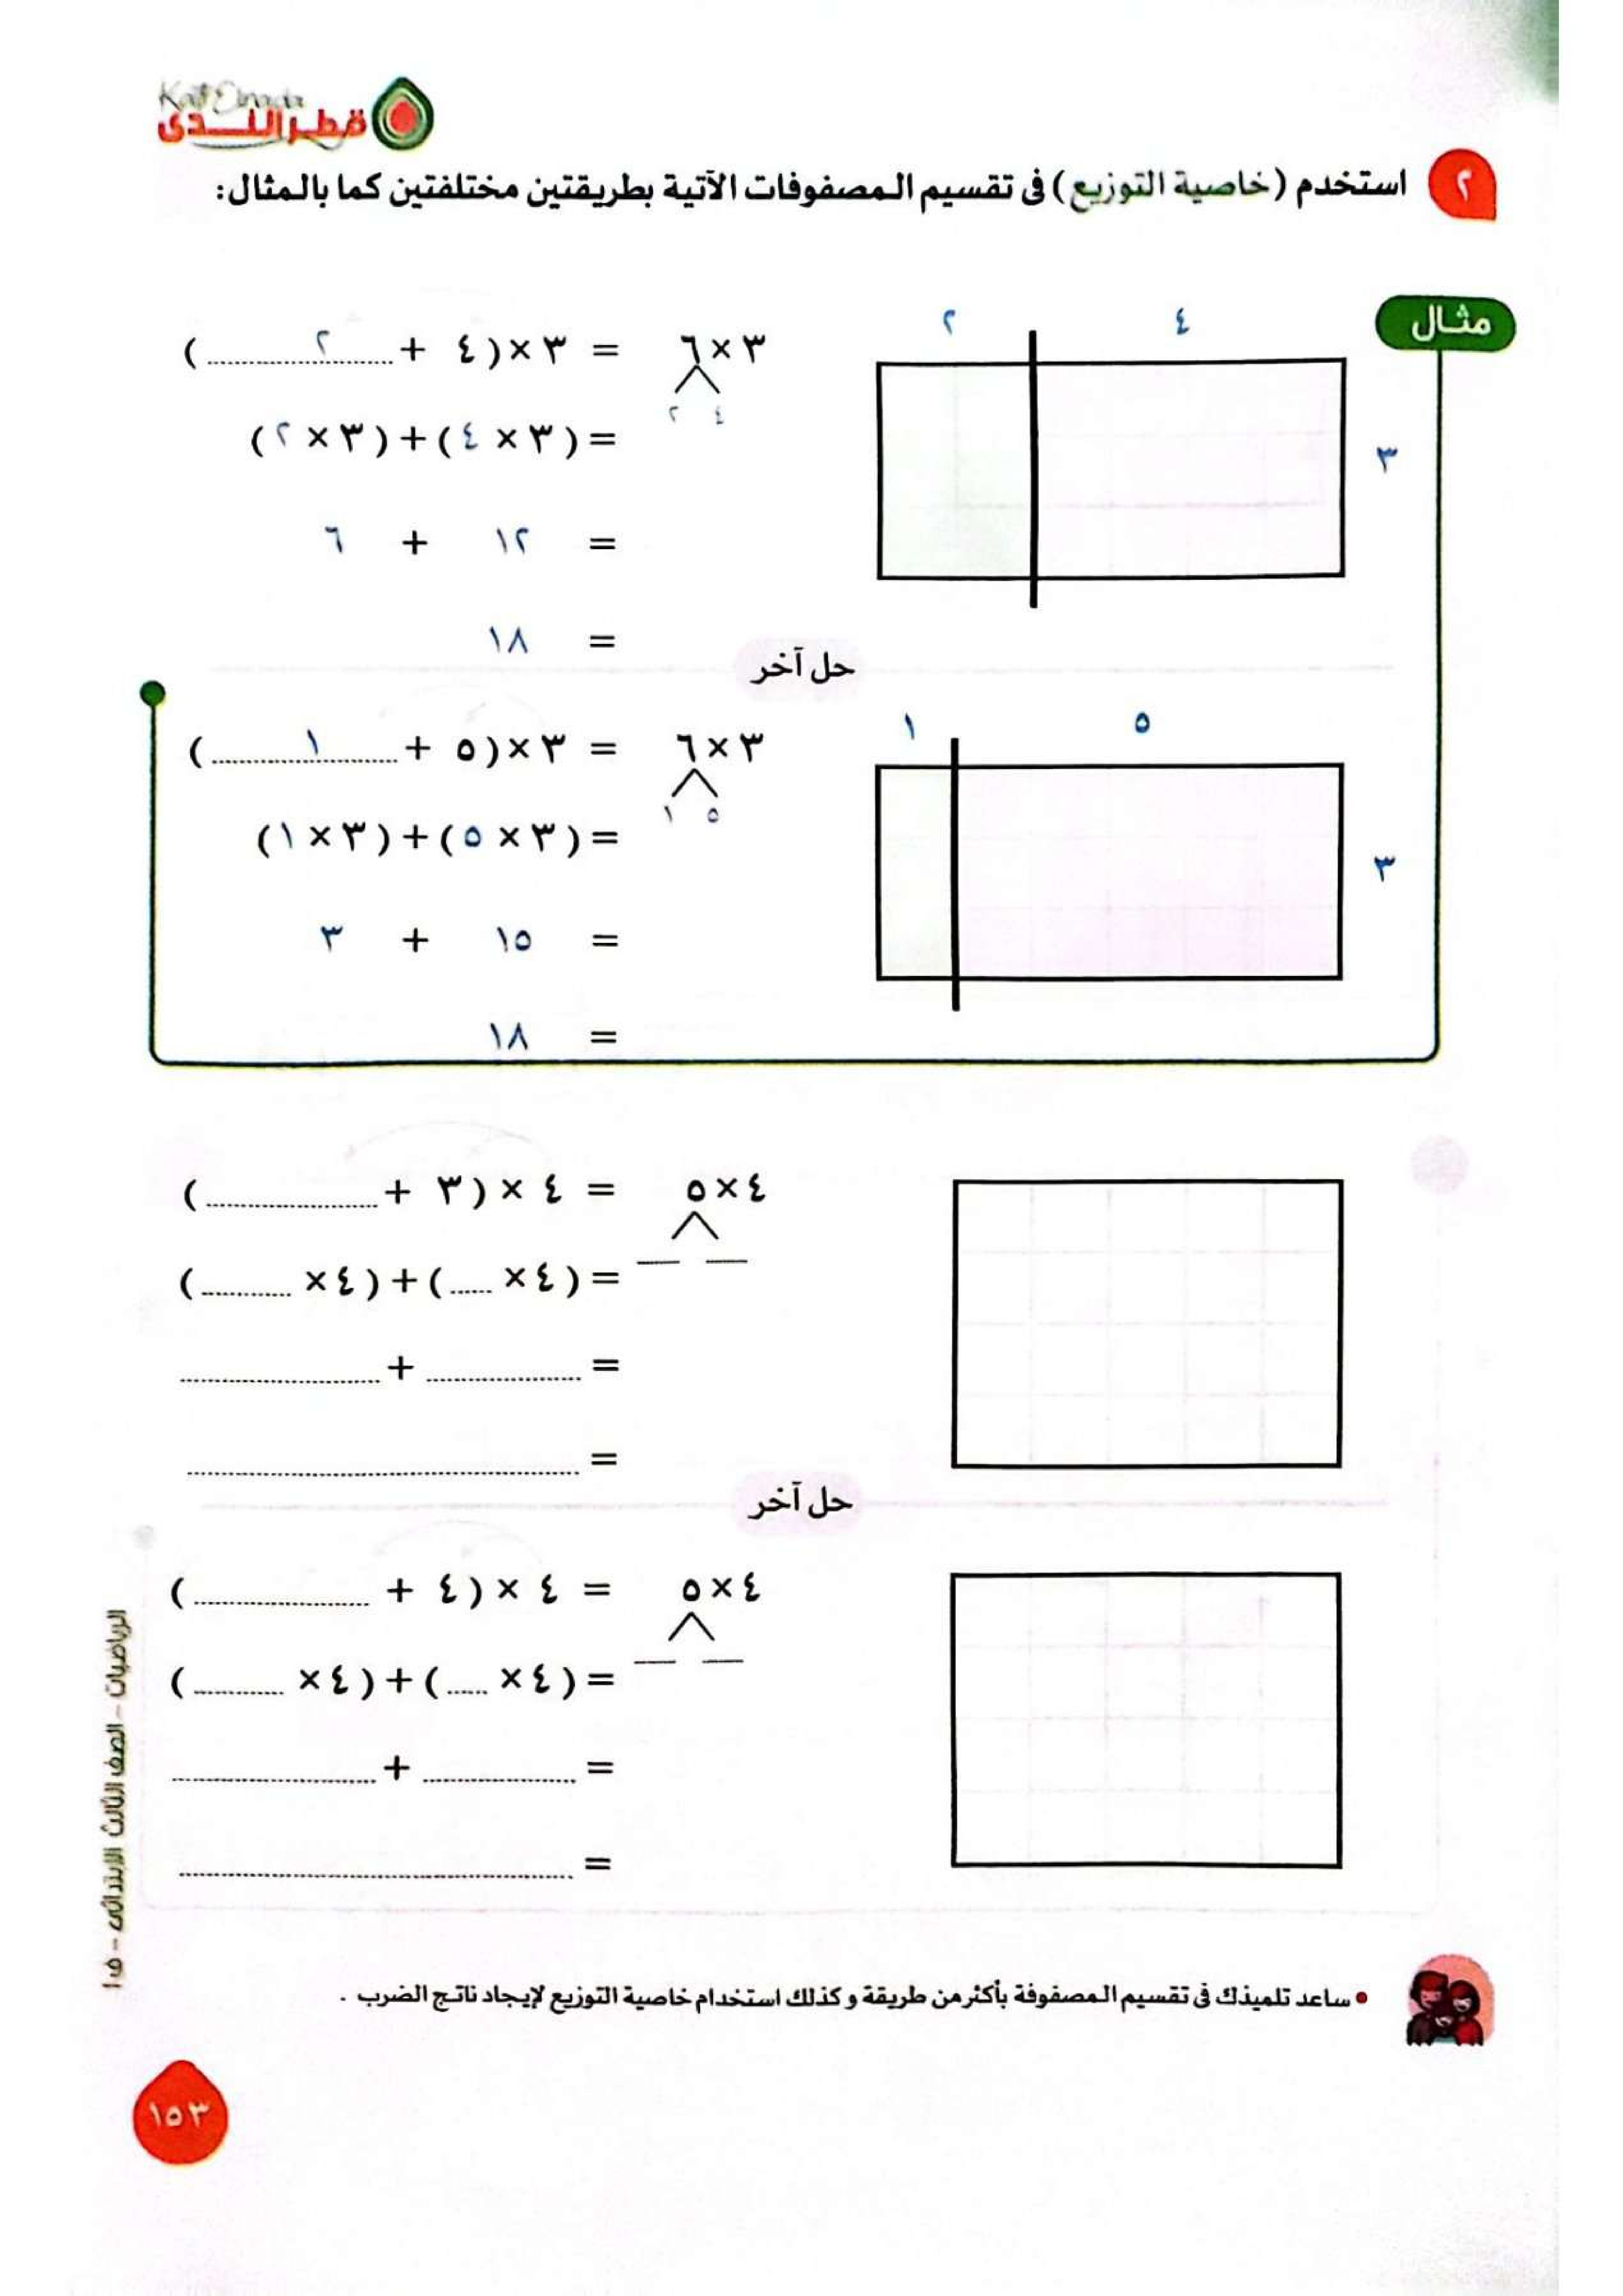 Katr Elnada
قطر الندى
٢ استخدم (خاصية التوزيع) فى تقسيم المصفوفات الآتية بطريقتين مختلفتين كما بالمثال:
مثال
٤ ٢
٣
٣ × ٦ = ٣ × (٤ + ٢)
٤ ٢
= (٣ × ٤) + (٣ × ٢)
= ١٢ + ٦
= ١٨
حل آخر
٥ ١
٣
٣ × ٦ = ٣ × (٥ + ١)
٥ ١
= (٣ × ٥) + (٣ × ١)
= ١٥ + ٣
= ١٨
٤ × ٥ = ٤ × (٣ + ............)
= (٤ × ....) + (٤ × ........)
= ............ + ............
= ........................
حل آخر
٤ × ٥ = ٤ × (٤ + ............)
= (٤ × ....) + (٤ × ........)
= ............ + ............
= ........................
• ساعد تلميذك فى تقسيم المصفوفة بأكثر من طريقة و كذلك استخدام خاصية التوزيع لإيجاد ناتج الضرب .
الرياضيات - الصف الثالث الابتدائى - ف١
١٥٣